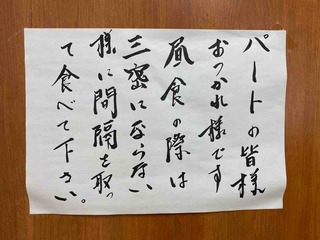 パートの皆様
おつかれ様です
昼食の際は
三密にならない
様に間隔を取っ
て食べて下さい。